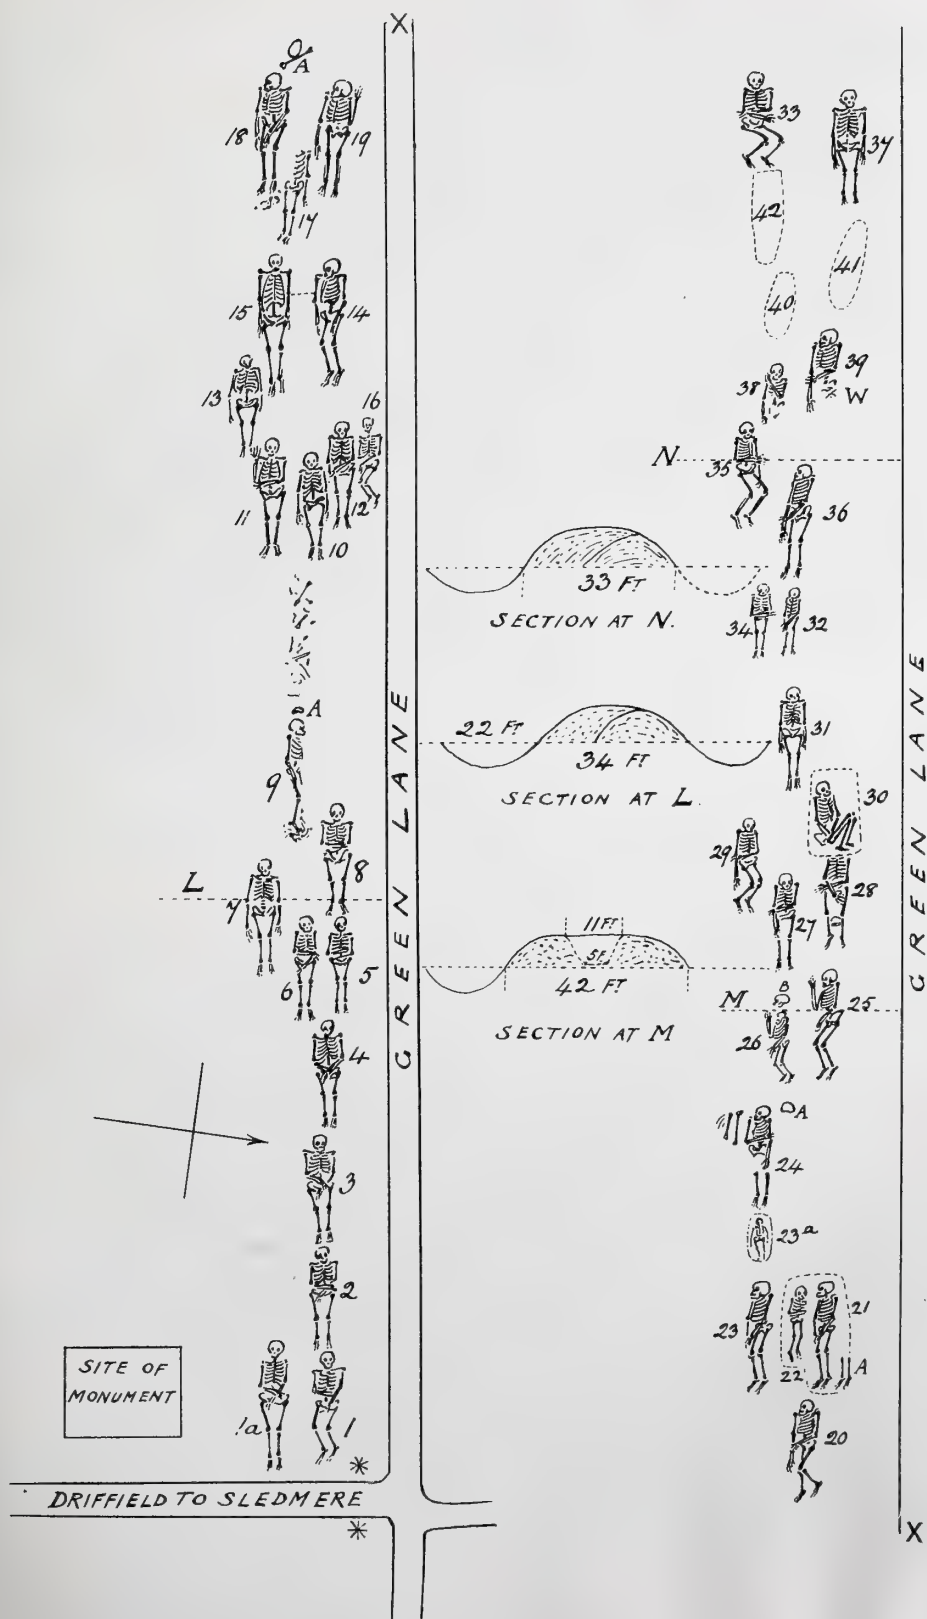 X
A
18
19
17
15
14
13
16
11
12
10
A
9
8
L
7
6
5
4
3
2
SITE OF
MONUMENT
1a
1
*
DRIFFIELD TO SLEDMERE
*
GREEN LANE
33 FT
SECTION AT N.
22 FT
34 FT
SECTION AT L.
11 FT
5 F.
42 FT
SECTION AT M
33
37
42
41
40
39
38
W
N
35
36
34
32
31
30
29
28
27
M
B
25
26
A
24
23a
23
21
22
A
20
X
GREEN LANE